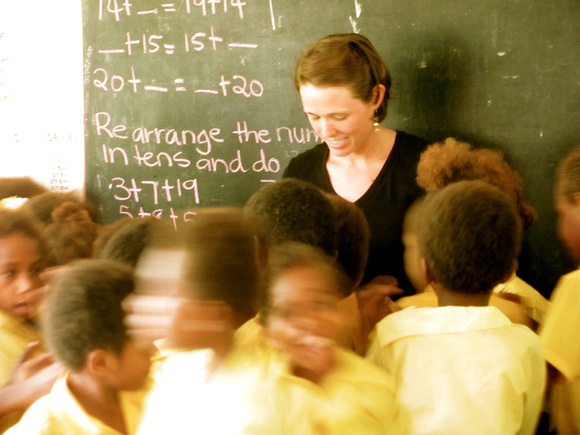 14+ _ = 19+14
_ +15 = 15+ _
20+ _ = _ +20
Rearrange the
In tens and do
3+7+19